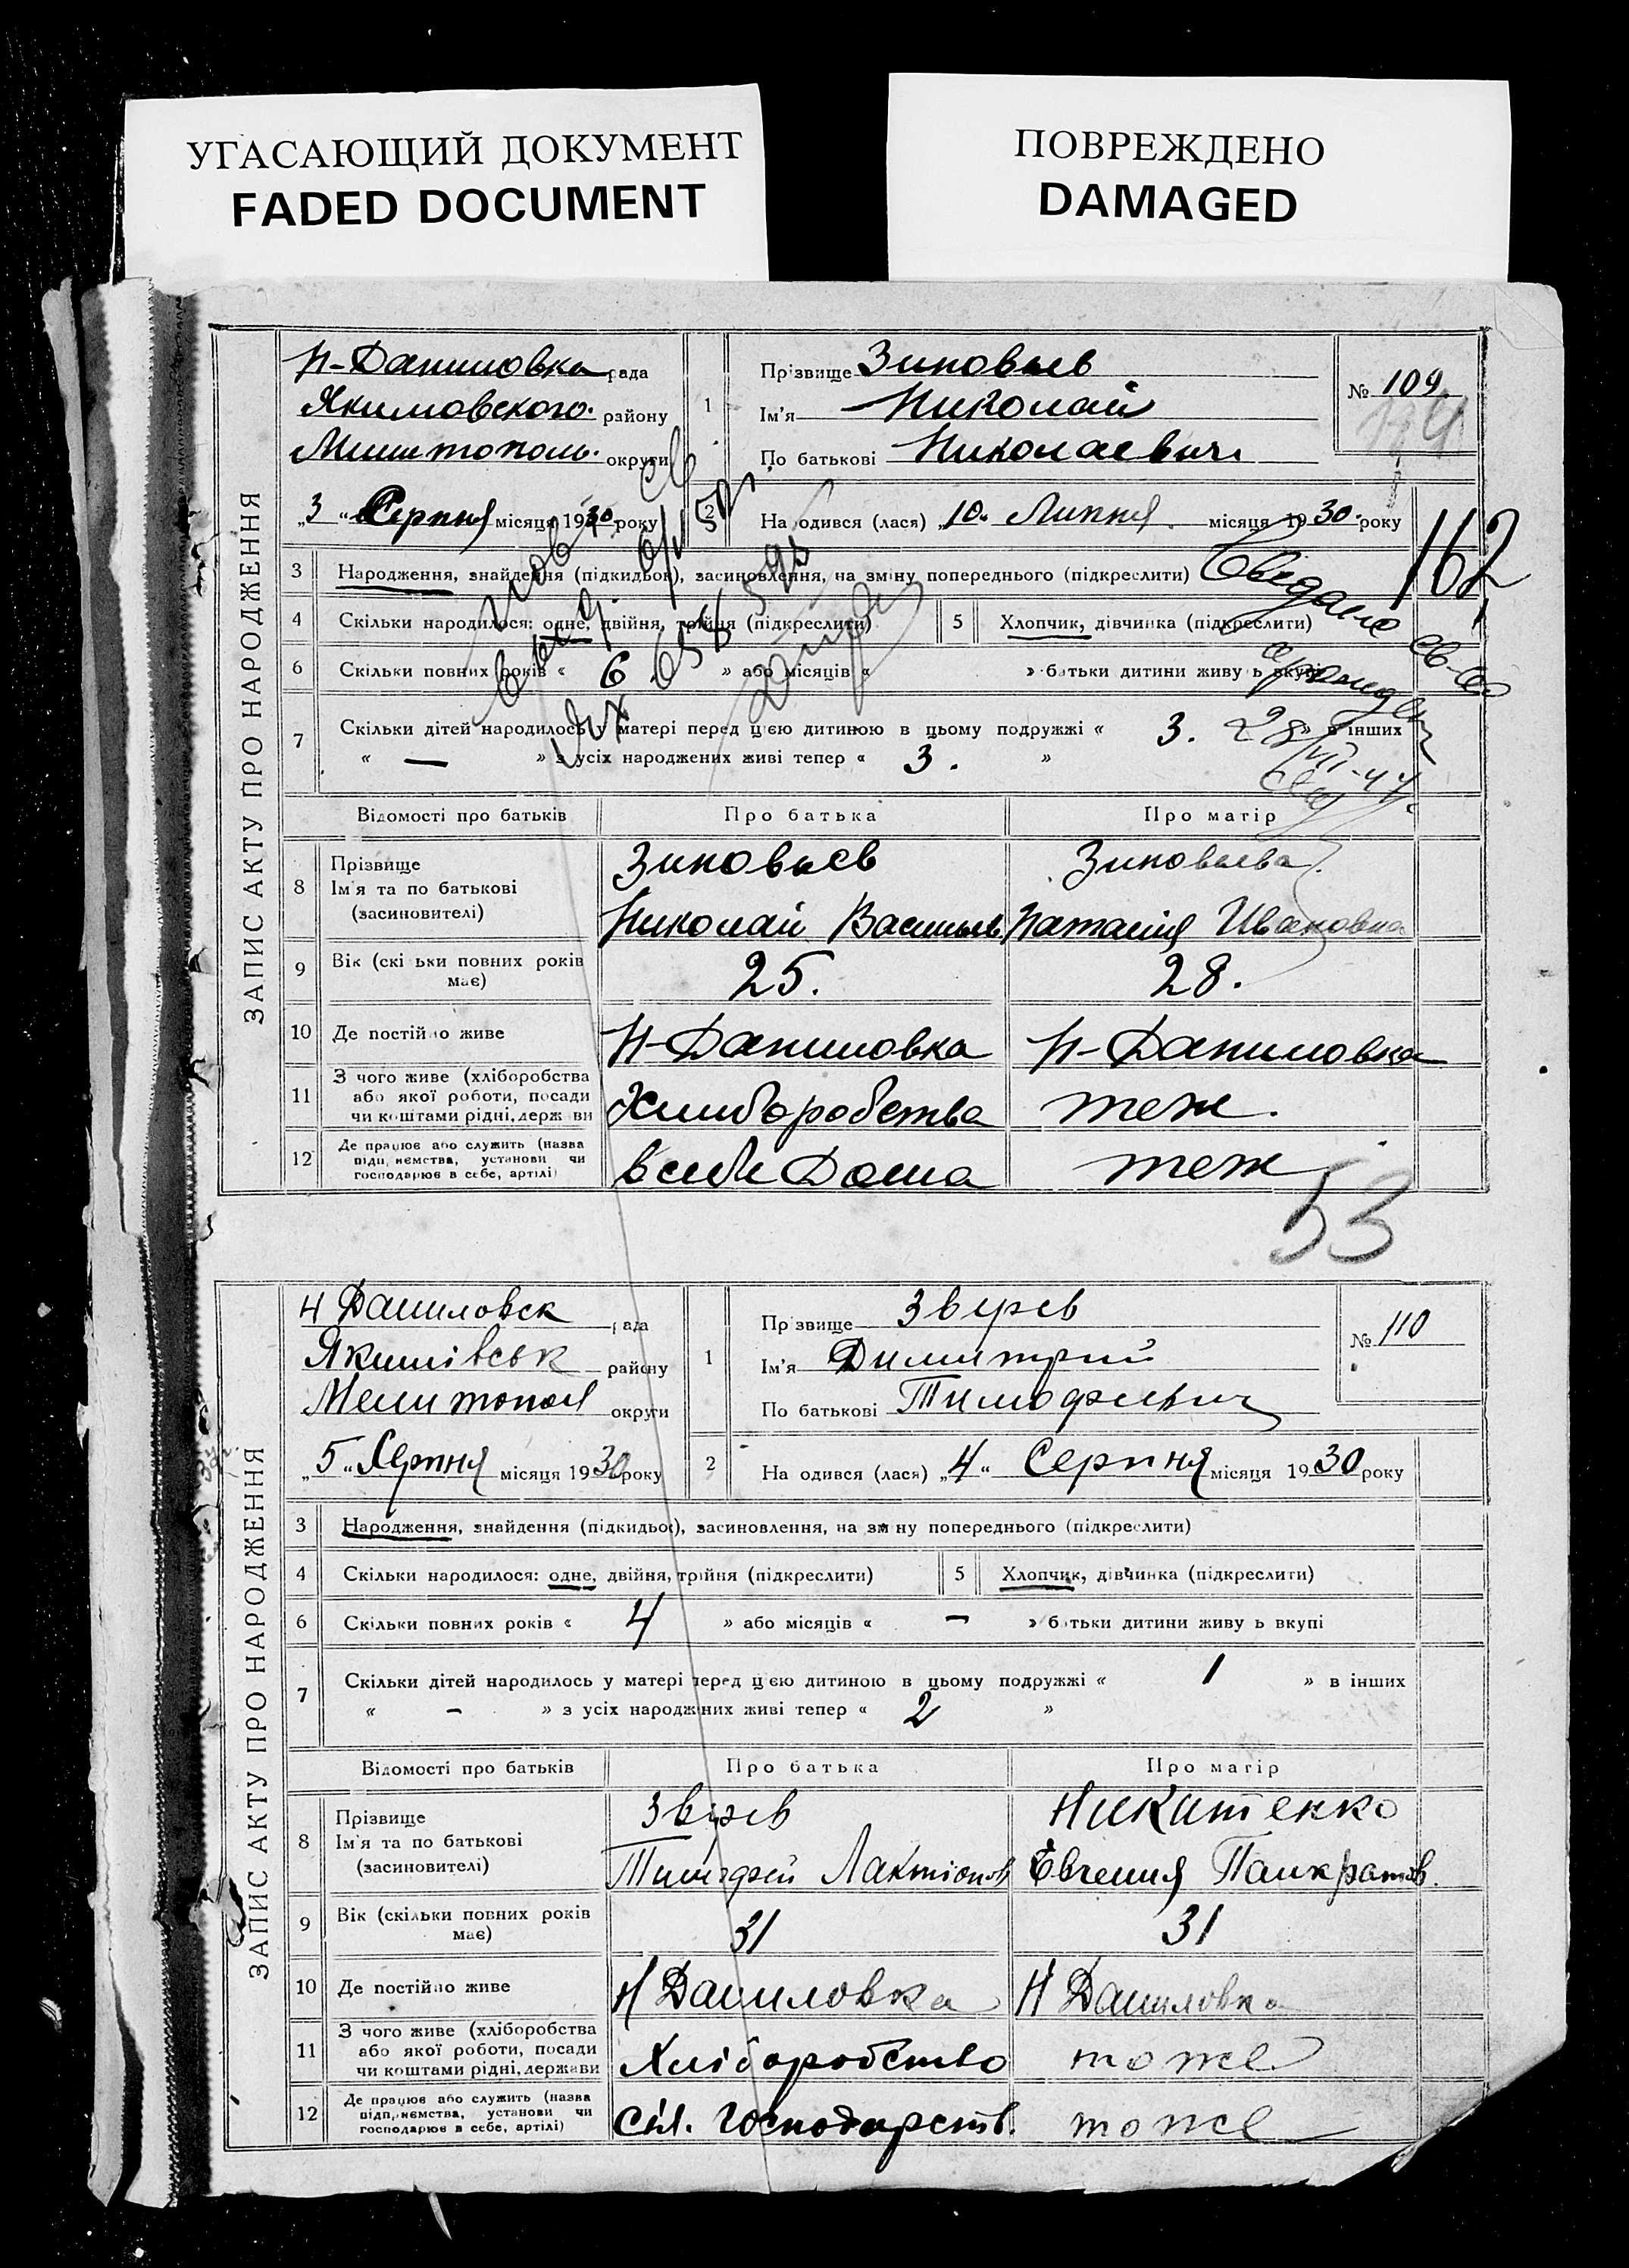 УГАСАЮЩИЙ ДОКУМЕНТ
FADED DOCUMENT
ПОВРЕЖДЕНО
DAMAGED
ЗАПИС АКТУ ПРО НАРОДЖЕННЯ
Н-Даниловка рада
Якимовского. району
Мелитополь. округи
„3“ Серпня місяця 1930 року
1
Прізвище Зиновьев
Ім'я Николай
По батькові Николаевич
№ 109.
2 На одився (лася) 10. Липня. місяця 1930. року
162
3 Народження, знайдення (підкидьок), засиновлення, на зміну попереднього (підкреслити)
4 Скільки народилося: одне, двійня, трійня (підкреслити)
5 Хлопчик, дівчинка (підкреслити)
6 Скільки повних років « 6 » або місяців « » батьки дитини живу ь вкупі
7 Скільки дітей народилось у матері перед цією дитиною в цьому подружжі « 3. » в інших
« — » з усіх народжених живі тепер « 3. »
28/VII-44
Відомості про батьків Про батька Про матір
8 Прізвище
Ім'я та по батькові
(засиновителі)
Зиновьев
Николай Васильев
Зиновьева
Наталия Ивановна
9 Вік (скі ьки повних років має) 25. 28.
10 Де постійно живе Н-Даниловка Н-Даниловка
11 З чого живе (хліборобства
або якої роботи, посади
чи коштами рідні, держ ви
Хлиборобства теж.
12 Де працює або служить (назва
підприємства, установи чи
господарює в себе, артілі)
в себе Дома теж
53
ЗАПИС АКТУ ПРО НАРОДЖЕННЯ
Н Даниловск рада
Якимівськ району
Мелитопол округи
„5“ Серпня місяця 1930 року
1
Пр звище Зверев
Ім'я Димитрий
По батькові Тимофеевич
№ 110
2 На одився (лася) „4“ Серпня місяця 1930 року
3 Народження, знайдення (підкидьок), засиновлення, на зміну попереднього (підкреслити)
4 Скільки народилося: одне, двійня, трійня (підкреслити)
5 Хлопчик, дівчинка (підкреслити)
6 Скільки повних років « 4 » або місяців « — » батьки дитини живу ь вкупі
7 Скільки дітей народилось у матері перед цією дитиною в цьому подружжі « 1 » в інших
« - » з усіх народжених живі тепер « 2 »
Відомості про батьків Про батька Про матір
8 Прізвище
Ім'я та по батькові
(засиновителі)
Зверев
Тимофей Лактіонов
Никитенко
Евгения Панкратов.
9 Вік (скільки повних років має) 31 31
10 Де постійно живе Н Даниловка Н Даниловка
11 З чого живе (хліборобства
або якої роботи, посади
чи коштами рідні, держави
Хліборобство тоже
12 Де працює або служить (назва
підприємства, установи чи
господарює в себе, артілі)
Сіл. Господарств. тоже